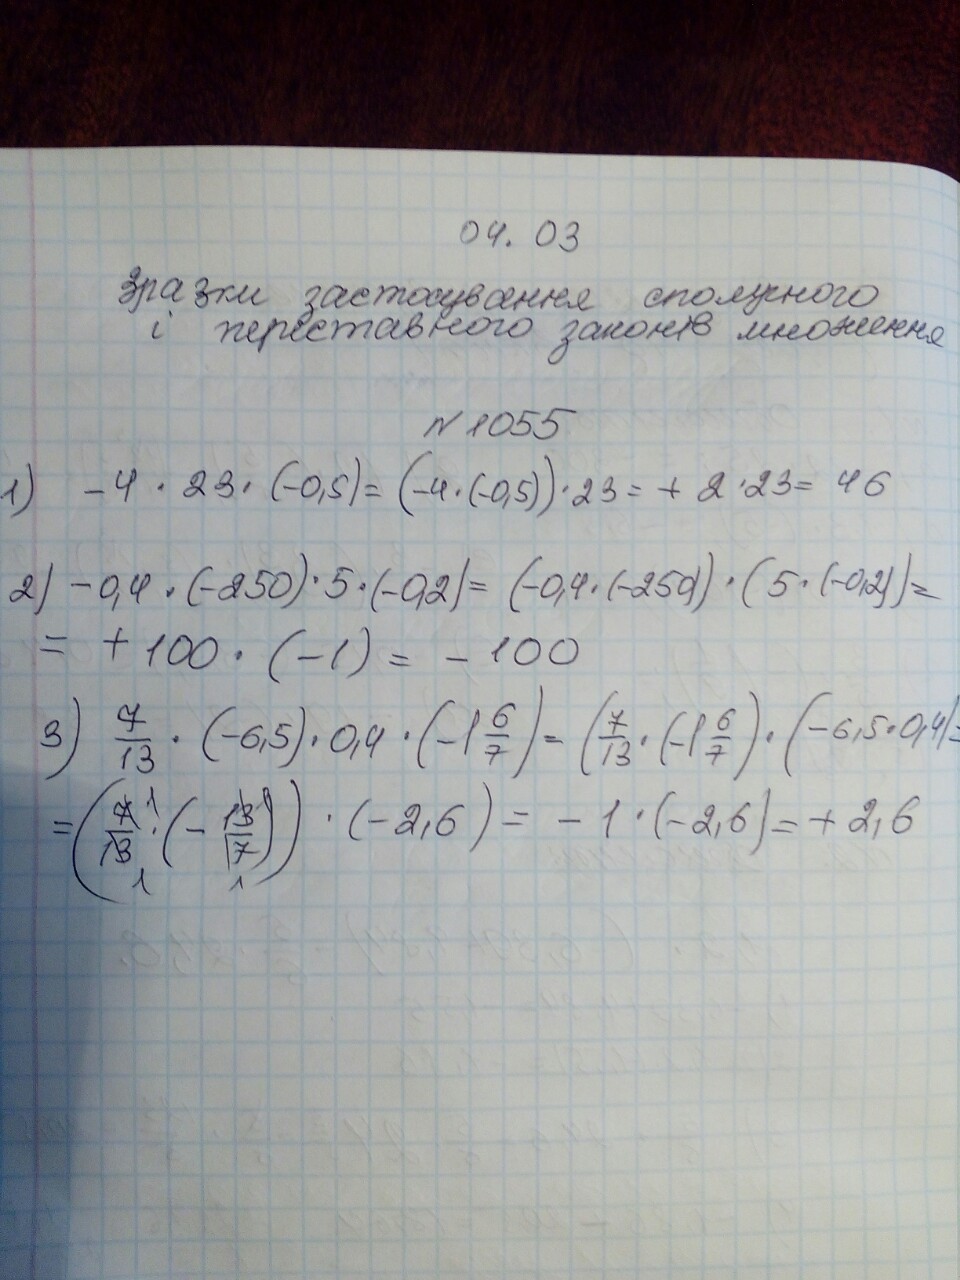 04. 03
Зразки застосування сполучного
і переставного законів множення
N 1055
1) -4 · 23 · (-0,5) = (-4 · (-0,5)) · 23 = + 2 · 23 = 46
2) -0,4 · (-250) · 5 · (-0,2) = (-0,4 · (-250)) · (5 · (-0,2)) =
= + 100 · (-1) = - 100
3) 7/13 · (-6,5) · 0,4 · (-1 6/7) = (7/13 · (-1 6/7)) · (-6,5 · 0,4) =
= (7/13 · (-13/7)) · (-2,6) = - 1 · (-2,6) = + 2,6